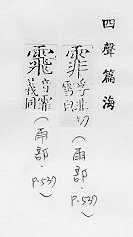 四聲篇海
霏 孚非切
雪皃
(雨部·P.537)
音霏
義同
(雨部·P.537)